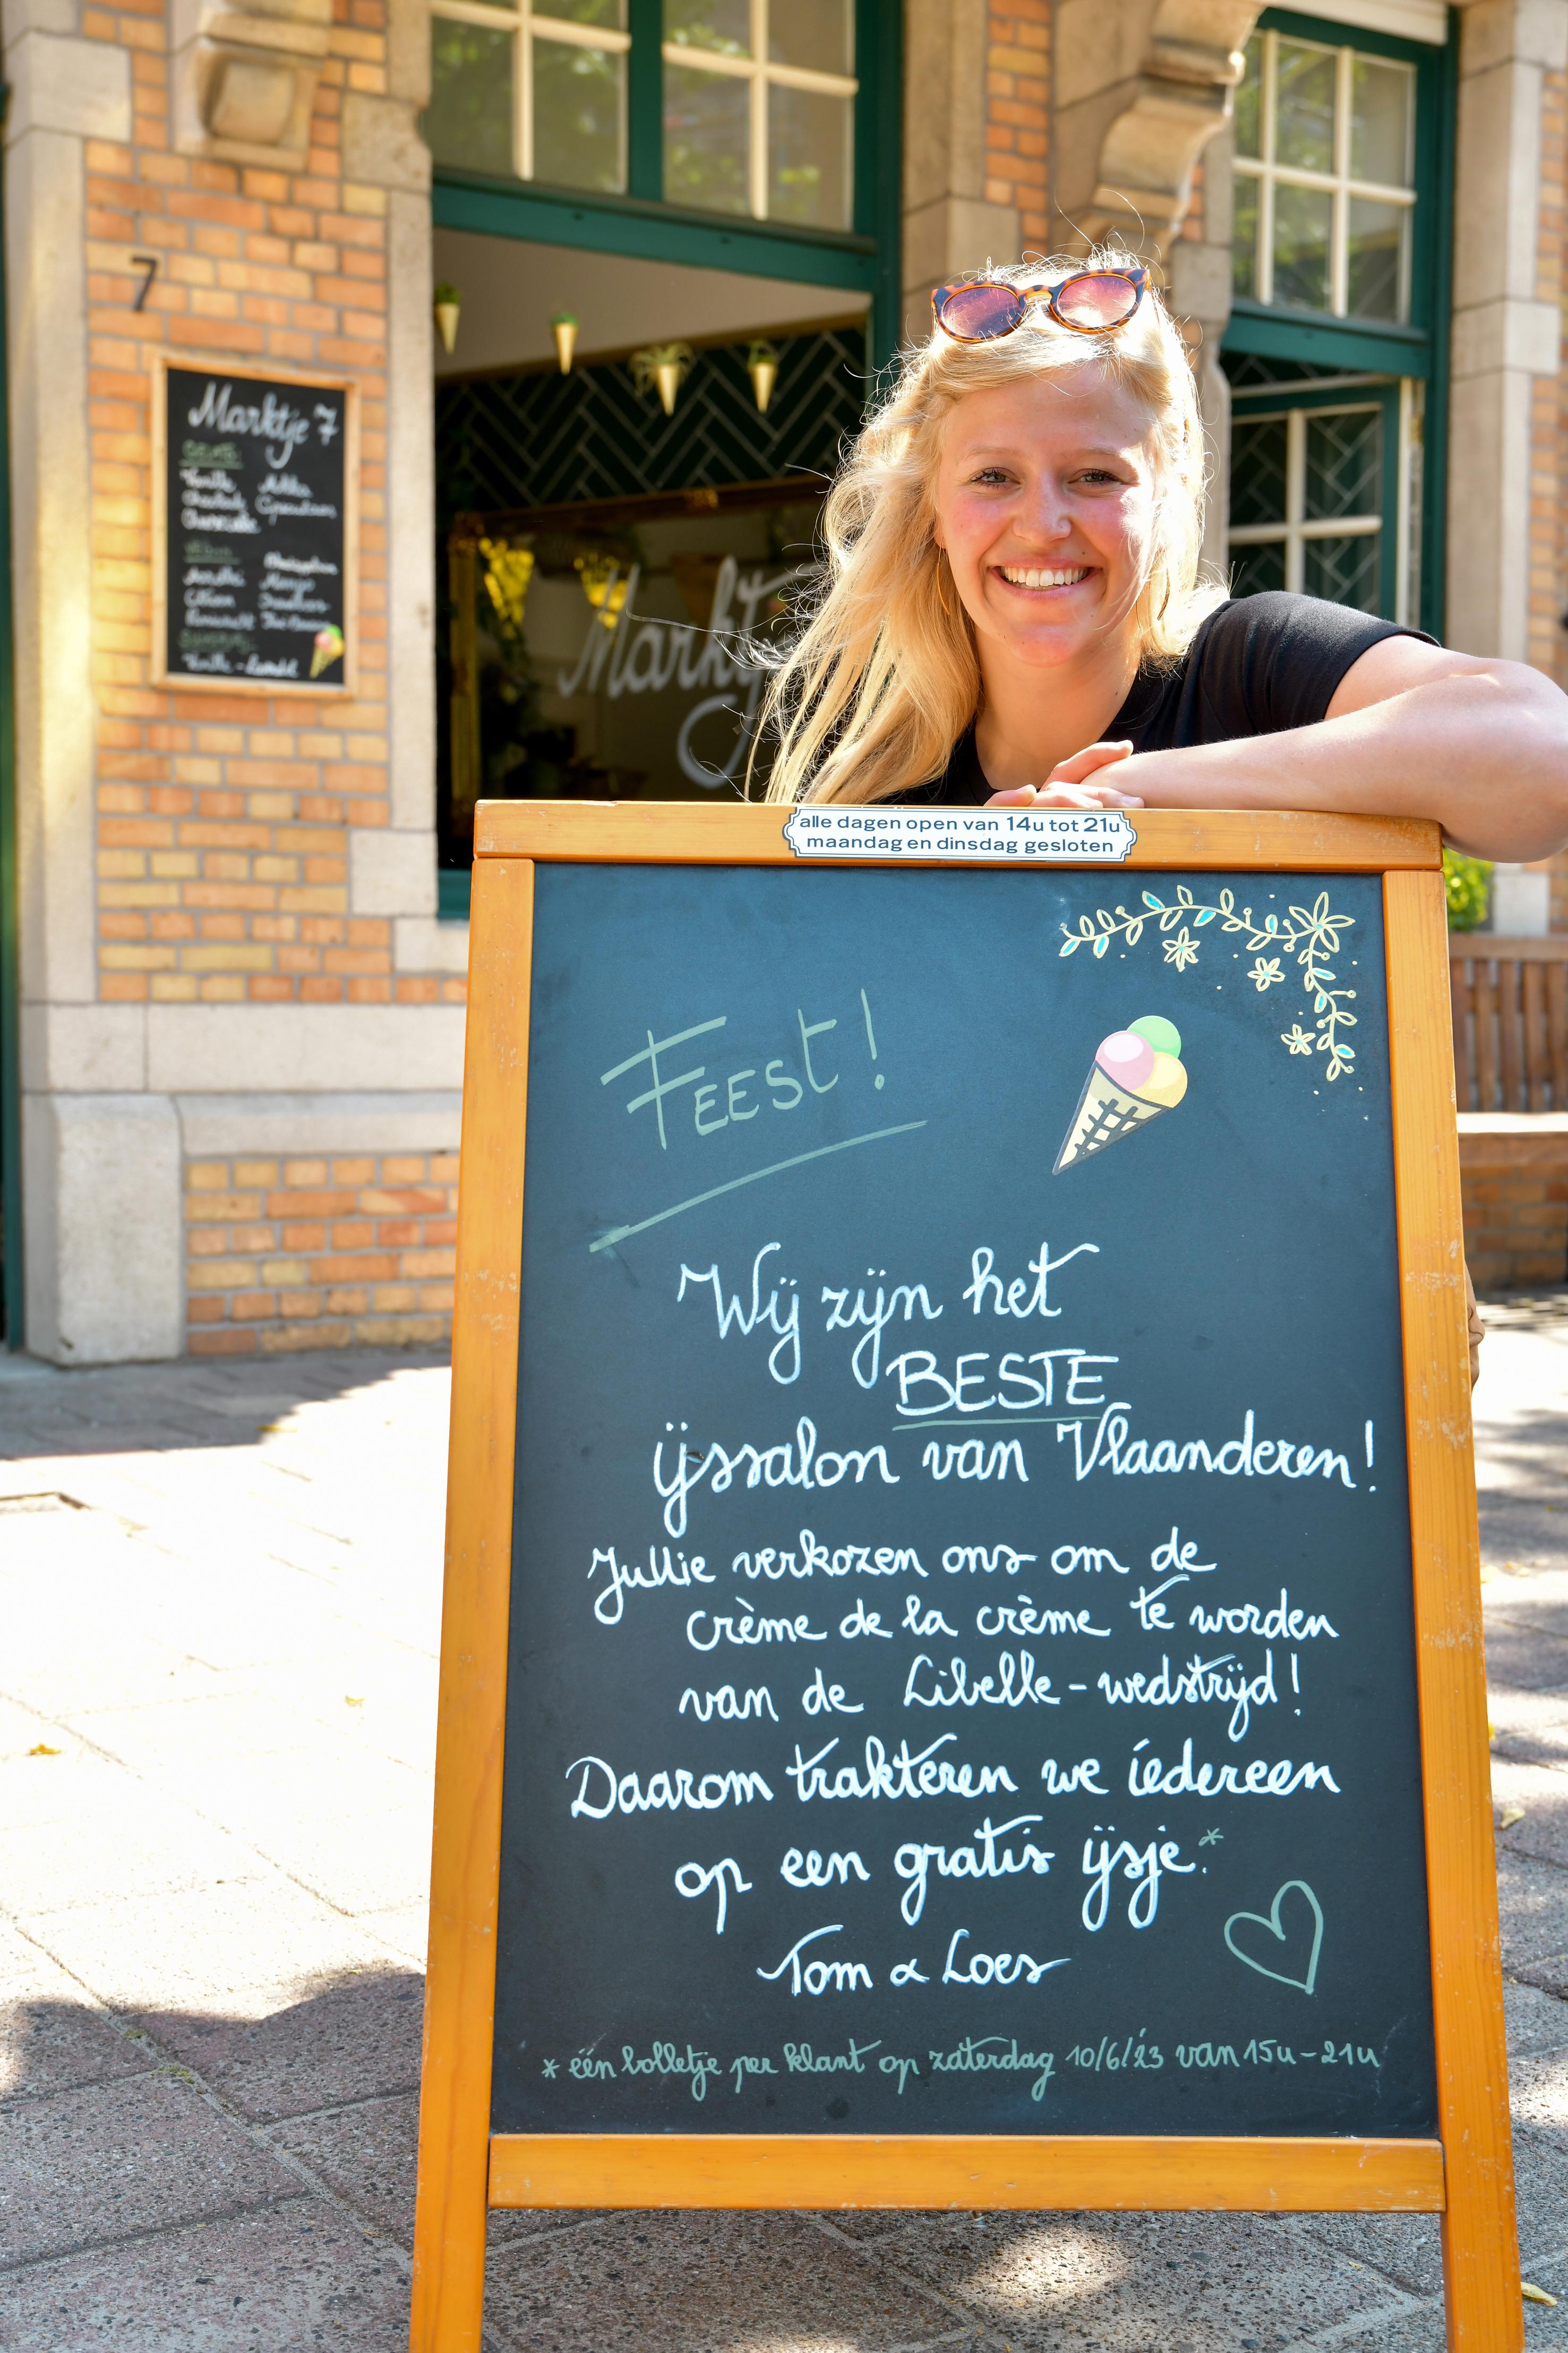 7
Marktje 7
Vanille
Mokka
Mango
Vanille -
Marktje
alle dagen open van 14u tot 21u
maandag en dinsdag gesloten
FEEST!
Wij zijn het
BESTE
ijssalon van Vlaanderen!
Jullie verkozen ons om de
crème de la crème te worden
van de Libelle-wedstrijd!
Daarom trakteren we iedereen
op een gratis ijsje.*
Tom & Loes
* één bolletje per klant op zaterdag 10/6/23 van 15u-21u